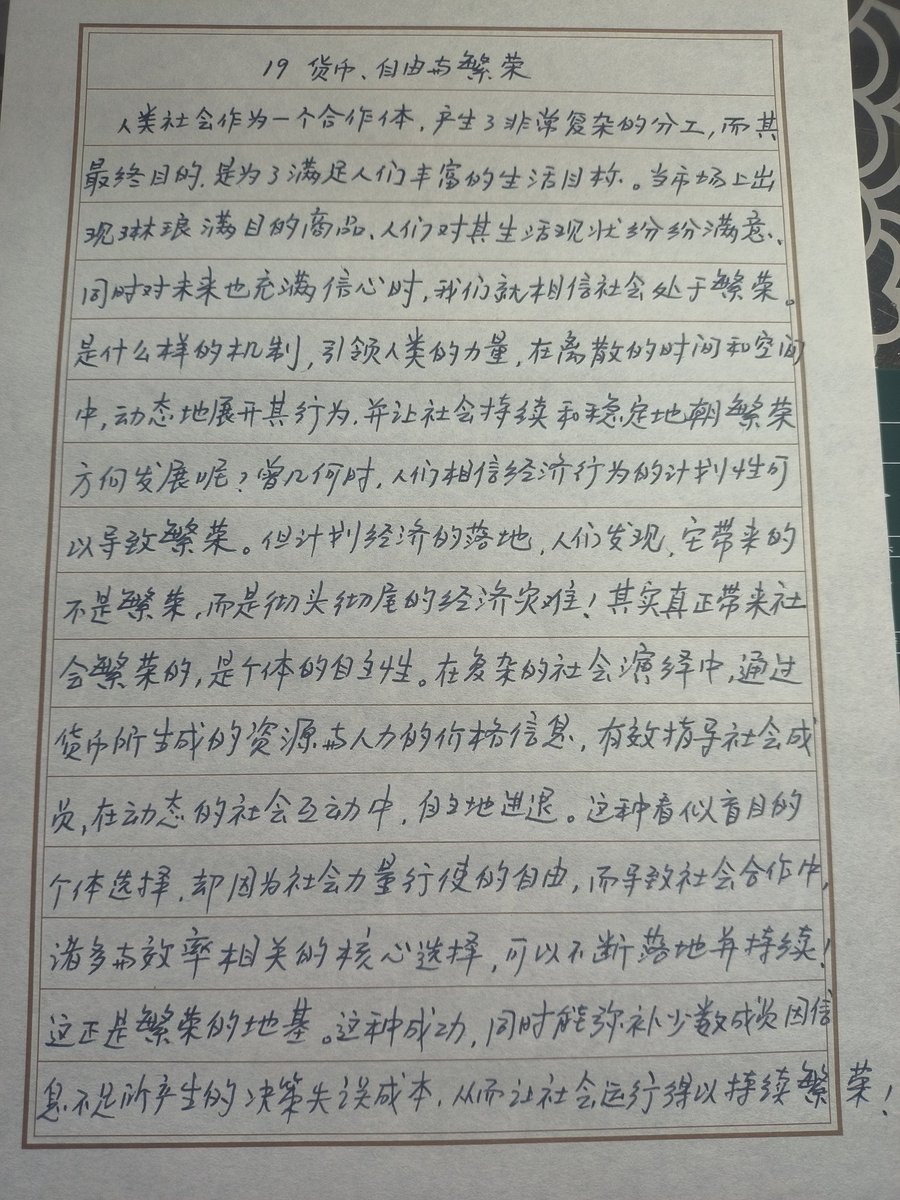 19 货币、自由与繁荣
人类社会作为一个合作体,产生了非常复杂的分工,而其
最终目的,是为了满足人们丰富的生活目标。当市场上出
现琳琅满目的商品、人们对其生活现状纷纷满意、
同时对未来也充满信心时,我们就相信社会处于繁荣。
是什么样的机制,引领人类的力量,在离散的时间和空间
中,动态地展开其行为,并让社会持续和稳定地朝繁荣
方向发展呢?曾几何时,人们相信经济行为的计划性可
以导致繁荣。但计划经济的落地,人们发现,它带来的
不是繁荣,而是彻头彻尾的经济灾难!其实真正带来社
会繁荣的,是个体的自主性。在复杂的社会演绎中,通过
货币所生成的资源与人力的价格信息,有效指导社会成
员,在动态的社会互动中,自主地进退。这种看似盲目的
个体选择,却因为社会力量行使的自由,而导致社会合作中,
诸多与效率相关的核心选择,可以不断落地并持续!
这正是繁荣的地基。这种成功,同时能弥补少数成员因信
息不足所产生的决策失误成本,从而让社会运行得以持续繁荣!